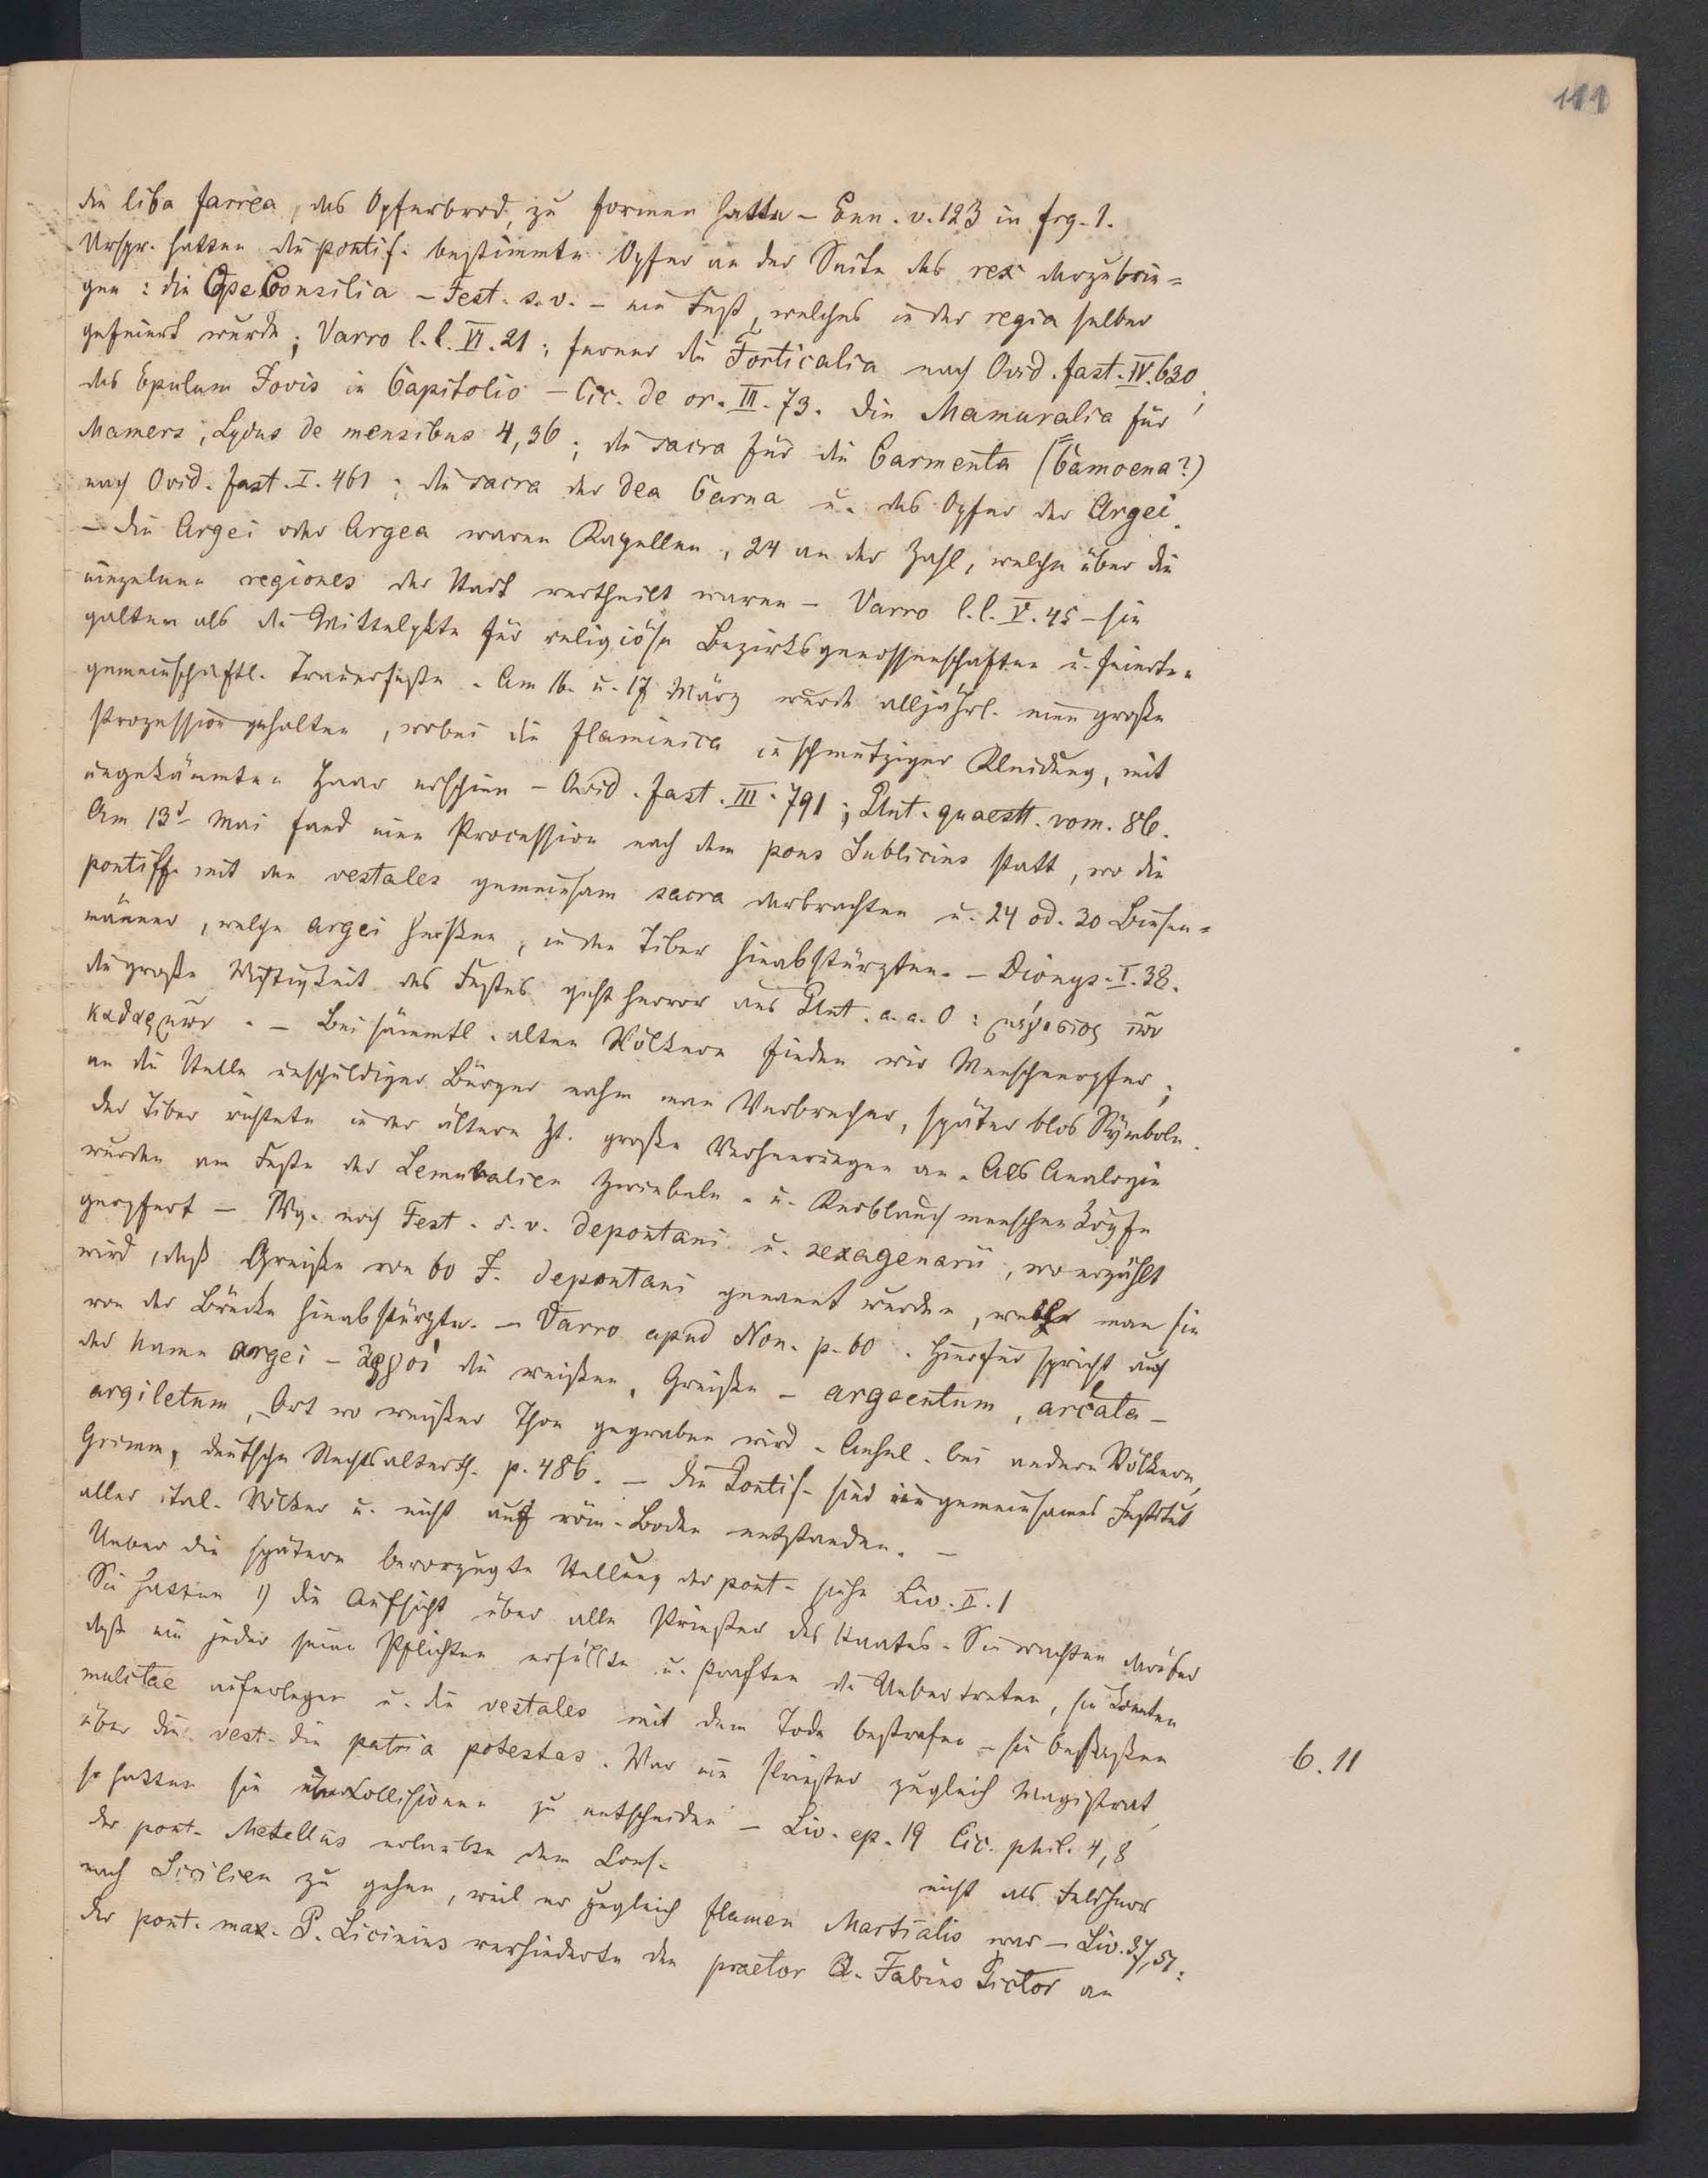 111
die liba farrea, das Opferbrod, zu formen hatte – Enn. v. 123 in frg. 1.
Urspr. hatten die pontif. bestimmte Opfer an der Seite des rex darzubrin=
gen: die Ope Consilia – Fest. s. v. – ein Fest, welches in der regia selber
gefeiert wurde; Varro l. l. VI. 21; ferner die Forticalia nach Ovid. fast. IV. 630;
das Epulum Jovis in Capitolio – Cic. de or. III. 73. Die Mamuralia für
Mamers, Lydus de mensibus 4,36; die sacra für die Carmenta (= Camoena?)
nach Ovid. fast. I. 461; die sacra der dea Carna u. das Opfer der Argei.
– Die Argei oder Argea waren Kapellen, 24 an der Zahl, welche über die
einzelnen regiones der Stadt vertheilt waren – Varro l. l. V. 45 – sie
galten als die Mittelpkte für religiöse Bezirksgenossenschaften u. feierten
gemeinschaftl. Trauerfeste. Am 16. u. 17 März wurde alljährl. eine große
Prozession gehalten, wobei die flaminica in schmutziger Kleidung, mit
ungekämmten Haar erschien – Ovid. fast. III. 791; Plut. quaestt. rom. 86.
Am 13t. Mai fand eine Procession nach dem pons Sublicius statt, wo die
pontiff. mit den vestales gemeinsam sacra darbrachten u. 24 od. 30 Binsen=
männer, welche argei hießen, in den Tiber hinabstürzten. – Dionys. I. 38.
die große Wichtigkeit des Festes geht hervor aus Plut. a. a. O: μέγιστος τῶν
καθαρμῶν. – Bei sämmtl. alten Völkern finden wir Menschenopfer;
an die Stelle unschuldiger Bürger nahm man Verbrecher, später blos Symbole.
Der Tiber richtete in der ältern Zt. große Verheerungen an. Als Analogie
wurden am Feste der Lemuralien Zwiebeln= u. Knoblauch menschen Köpfe
geopfert – Vrg. noch Fest. s. v. depontani u. sexagenarii, wo erzählt
wird, daß Greise von 60 J. depontani genannt wurden, welche man sie
von der Brücke hinabstürzte. – Varro apud Non. p. 60. Hierfür spricht auch
der Name argei – ἀργοί die weißen, Greise – argentum, arcata –
argiletum, Ort wo weißer Thon gegraben wird. Aehnl. bei andern Völkern,
Grimm, deutsche Rechtsalterth. p. 486. – Die Pontif. sind ein gemeinsames Institut
aller ital. Völker u. nicht auf röm. Boden entstanden. –
Ueber die spätere bevorzugte Stellung der pont. siehe Liv. II. 1
Sie hatten 1) die Aufsicht über alle Priester des Staates. Sie wachten darüber
daß ein jeder seine Pflichten erfüllte u. straften die Uebertreter, sie konnten
mulctae auferlegen u. die vestales mit dem Tode bestrafen – sie besaßen
über die vest. die patria potestas. War ein Priester zugleich Magistrat,
so hatten sie über Kollisionen zu entscheiden – Liv. ep. 19 Cic. phil. 4,8
6. 11
der pont. Metellus erlaubte dem Cons. nicht als Feldherr
nach Sicilien zu gehen, weil er zugleich flamen Martialis war – Liv. 37,51:
der pont. max. P. Licinius verhinderte den praetor Q. Fabius Pictor an